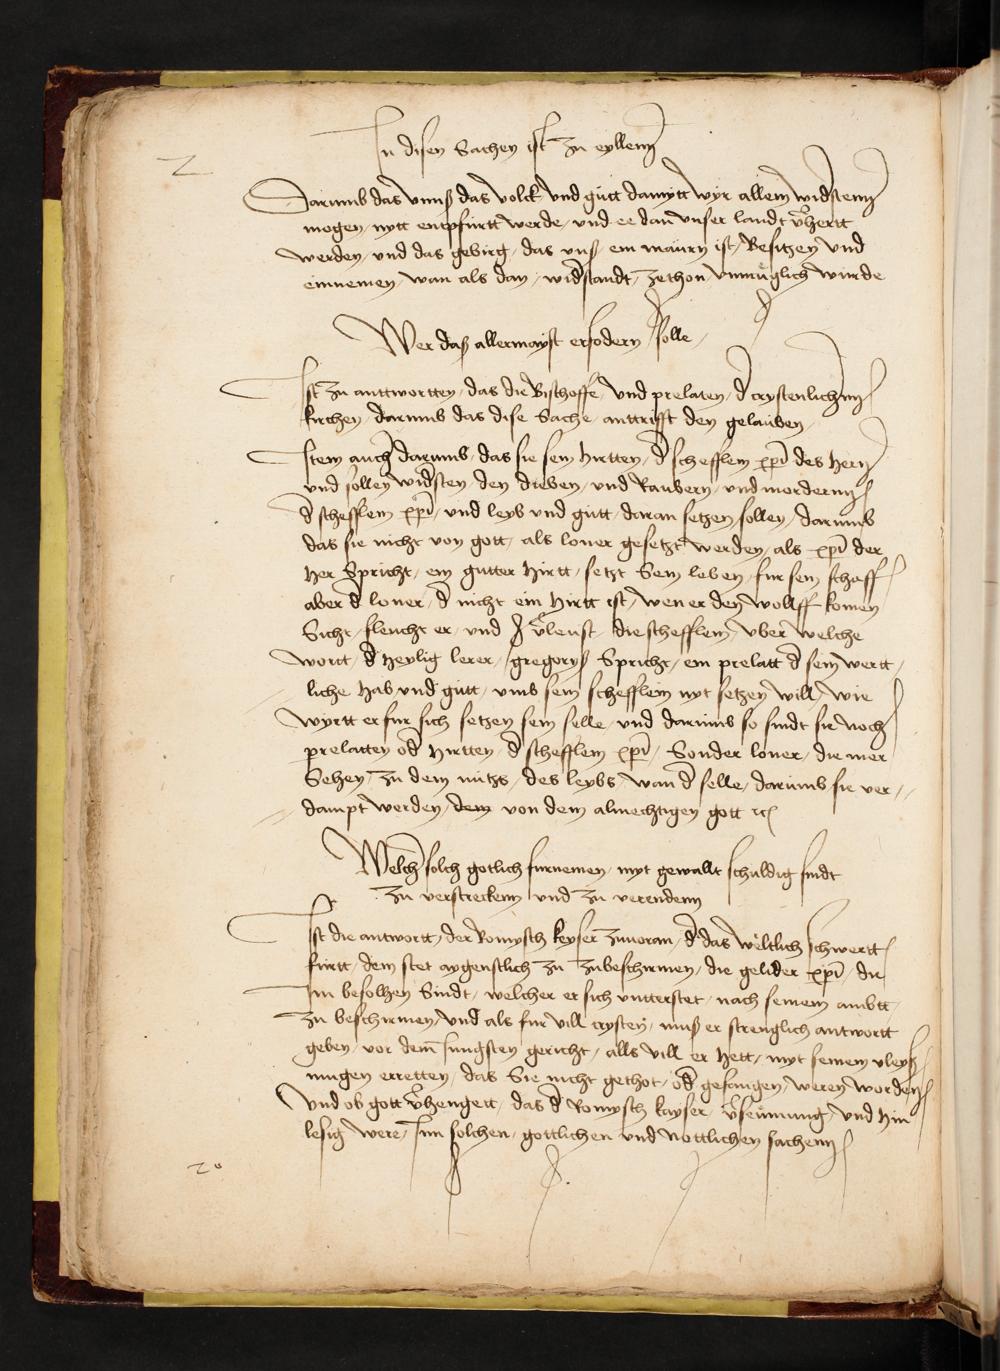 In disen Sachen ist zu eyllenn
2
Darumb das unns das volck und gutt damytt wyr allein widsteenn
mogen, nytt entpfurtt werde, und ee dan unser landt v̄hertt
werden, und das gebirg, das uns, ein maurn ist, Besitzen und
einnemen, wan als dan, widstandt, zethon, unmuglich wurde
Wer das allermayst erfodern, solle,
Ist zu antwortten, das die Bischoffe, und prelaten, d crystenlichenn
kirchen, darumb das dise Sache, anttrifft den gelauben,
Item auch darumb, das sie sein Hirtten, d schefflein xpi des Hern
und sollen widsten, den dieben, und Raubern, und mordernn
d schefflein xpi, und leyb und gutt, daran setzen sollen, darumb
das sie nicht von gott, als loner gesetzt werden, als xpi der
Her Spricht, ein gutter Hirtt, setzt Sein leben, fur sein schaff
aber d loner, d nicht ein Hirtt ist, wen er den wolff komen
Sicht, fleucht er, und v̄leust, die schefflein, uber welche
wortt, d heylig lerer, gregorys Spricht, ein prelatt d sein wertt,
liche Hab und gutt, umb sein schefflein nyt setzen will, wie
wyrtt er fur sich setzen sein selle, und darumb so sindt sie noch
prelatten od Hirtten, d schefflein xpi, Sonder loner, die mer
Sehen, zu dem nutzs, des leybs, wan d selle, darumb sie ver,,
dampt werden, dem von dem almechtigen gott ꝛc
Welch solch gotlich furnemen, myt gewallt schuldig sindt
zu verstreckenn und zu verendenn
Ist die antwortt, der Romysch keyser zuvoran, d das weltlich schwertt
furtt, dem stet aygenstlich zu zubeschirmen, die gelider xpi, die
Im befolhen Sindt, welcher er sich untterstet, nach seinem ambtt
zu beschirmen, und als fur vill crysten, mus er strenglich antwortt
geben, vor dem Jungsten gericht, alls vill er Hett, myt seinem vleys
mugen erretten, das Sie nicht gethot, od gefangen, weren worden
Und ob gott v̄hengett, das d Romysch kayser, v̄seumung, und Hin
lesig were, Inn solchen, gottlichen und nottlichen sachenn
20